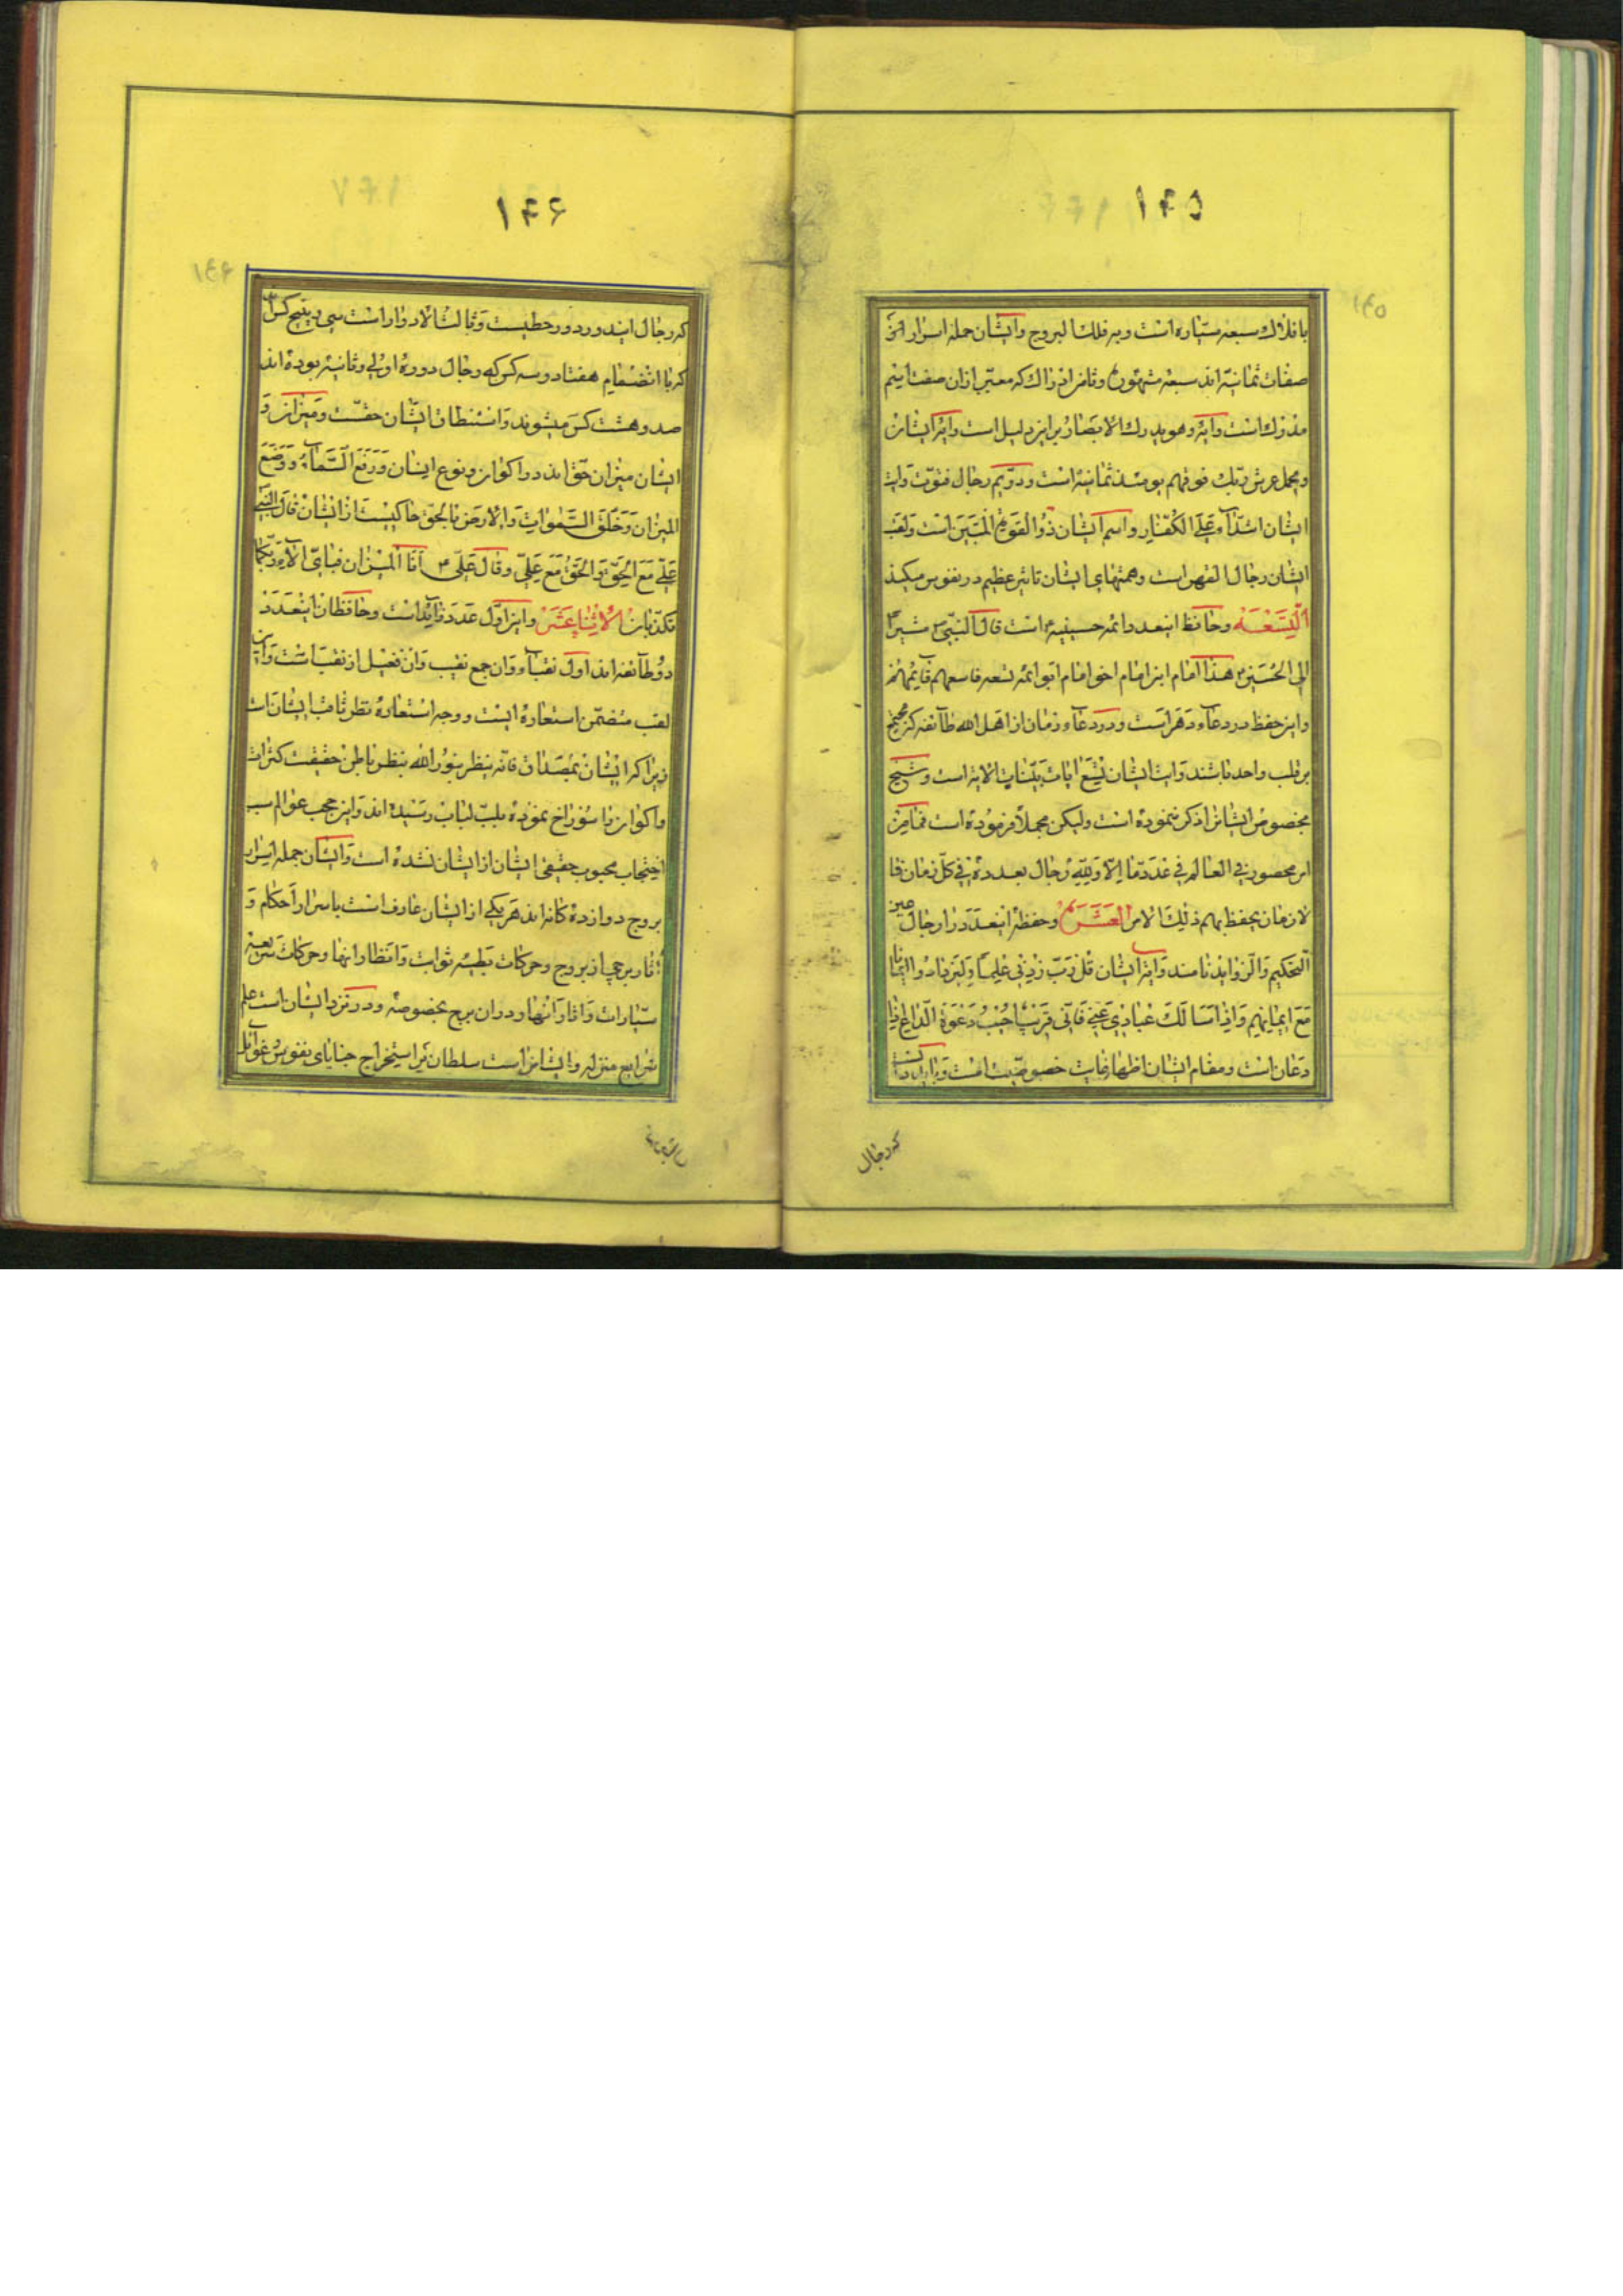 ١٤٥
بافلاك سبعه سیّاره است وبه فلك البروج وایشان جمله اسرار
صفات ثمانیّه اند سبعه مشهوره وثامن ادراك كه معبّر ازان صفت
مدرك است وایه وهو یدرك الابصار براین دلیل است وایه ایشان
ویحمل عرش ربّك فوقهم یومئذ ثمانیه است ودوّیم رجال قوّت وایت
ایشان اشدّآء علی الکفّار واسم ایشان ذوالقوة المتین است ولقب
ایشان رجال القهر است وهمتهای ایشان تاثیر عظیم در نفوس میکند
التّسعه وحافظ اینعدد ائمه حسینیه است قال النبّی ص مشیراً
الی الحسین هذا امام ابن امام اخو امام ابو ائمه تسعه تاسعهم قایمهم
واین حفظ در دعآء دهر است ودر دعآء زمان از اهل الله طآئفه که
بر قلب واحد باشند وایت ایشان تسع ایات بیّنات الایه است وشیخ
مخصوص ایشانرا ذکر ننموده است ولیکن مجملاً فرموده است فما من
امر محصور فی العالم فی عدد مّا الّا ولِلّهِ رجال بعدده فی کلّ زمان
لازمان یحفظ بهم ذلك الامر العشره وحفظه اینعدد را رجال عین
التحکیم والزواید نامند وایه ایشان قل رّبّ زدنی علماً ولیزدادوا ایمانا
مع ایمانهم واذا سالك عبادی عنّی فانّی قریب اجیب دعوة الدّاع اذا
دعان است ومقام ایشان اظهار غایت خصوصیّت است
که رجال
١٤٦
که رجال ایندور دور حطیست وثالث الادوار است سی وپنج کس
که با انضمام هفتاد وسه کس که رجال دوره اولی وثانیه بوده اند
صد وهشت کس میشوند واستنطاق ایشان حقست ومیزان و
ایشان میزان حقّ اند در اکوان ونوع انسان ورفع السّمآء ووضع
المیزان وخلق السّموات والارض بالحقّ حاکیست از ایشان قال النبی
علیّ مع الحقّ والحقّ مع علیّ وقال علیّ انا المیزان فبایّ الآء ربّکما
تکذّبان الاثناعشر واین اوّل عدد زاید است وحافظان اینعدد
دو طآئفه اند اول نقبآء وان جمع نقیب وان فعیل از نقب است
لقب متضمّن استعاره ایست ووجه استعاره نظر ثاقب ایشان است
زیرا که ایشان بمصداق فانّه ینظر بنور الله بنظر باطن حقیقت کثرات
واکوان را سوراخ نموده بلبّ لباب رسیده اند واین حجب عوالم سبب
احتجاب محبوب حقیقی ایشان از ایشان نشده است وایشان جمله اسرار
بروج دوازده کانه اند هریکی از ایشان عارف است باسرار احکام و
اثار برجی از بروج وحرکات بطیئه ثوابت وانظار انها وحرکات سریعه
سیّارات واثار انها در ان برج بخصوصه ودر نزد ایشان است علم
شرایع منزله وایشانرا است سلطان بر استخراج خبایای نفوس